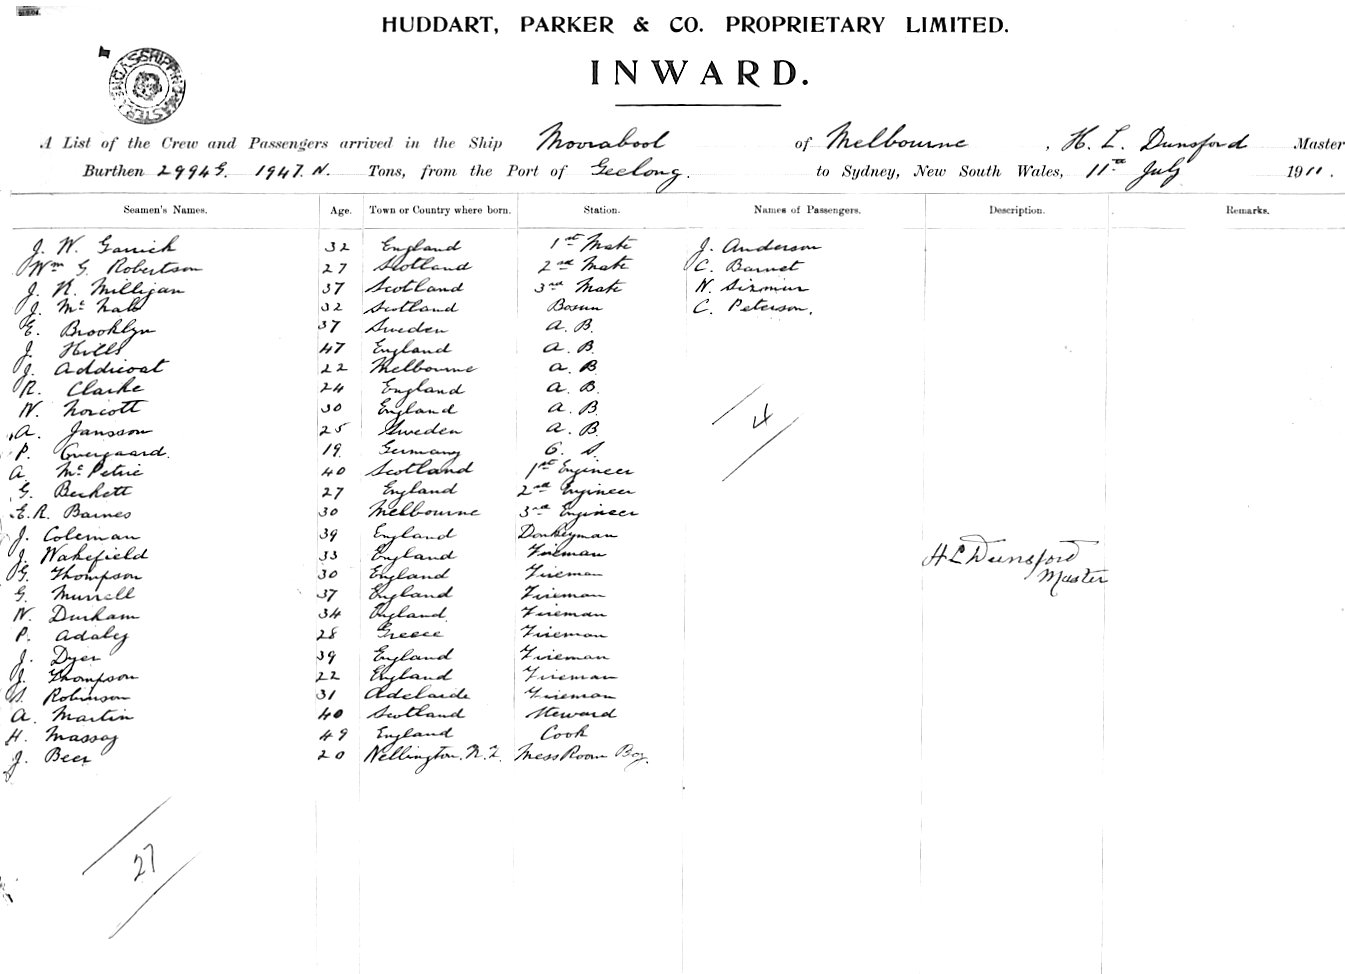 HUDDART, PARKER & CO. PROPRIETARY LIMITED.
INWARD.
A List of the Crew and Passengers arrived in the Ship Moorabool of Melbourne, H. L. Dunsford Master
Burthen 2994 G. 1947 N. Tons, from the Port of Geelong. to Sydney, New South Wales, 11th July 1911.
Seamen's Names. Age. Town or Country where born. Station. Names of Passengers. Description. Remarks.
J. W. Garrick 32 England 1st Mate J. Anderson
Wm G. Robertson 27 Scotland 2nd Mate C. Barnet
J. R. Milligan 37 Scotland 3rd Mate W.
J. McNab 32 Scotland Bosun C. Peterson.
E. Brooklyn 37 Sweden A. B.
J. Hills 47 England A. B.
J. Addicoat 22 Melbourne A. B
R. Clarke 24 England A. B.
W. Norcott 30 England A. B.
A. Jansson 25 Sweden A. B.
P. Overgaard. 19 Germany O. S.
A McPetrie 40 Scotland 1st Engineer
G. Beckett 27 England 2nd Engineer
E. R. Barnes 30 Melbourne 3rd Engineer
J. Coleman 39 England Donkeyman
J. Wakefield 33 England Fireman
G. Thompson 30 England Fireman
G. Murrell 37 England Fireman
W. Durham 34 England Fireman
P. Adaley 28 Greece Fireman
J. Dyer 39 England Fireman
J. Thompson 22 England Fireman
Robinson 31 Adelaide Fireman
A. Martin 40 Scotland Steward
H. Massey 49 England Cook
J. Beer 20 Wellington. N. Z. Mess Room Boy.
4
H L Dunsford
Master
27